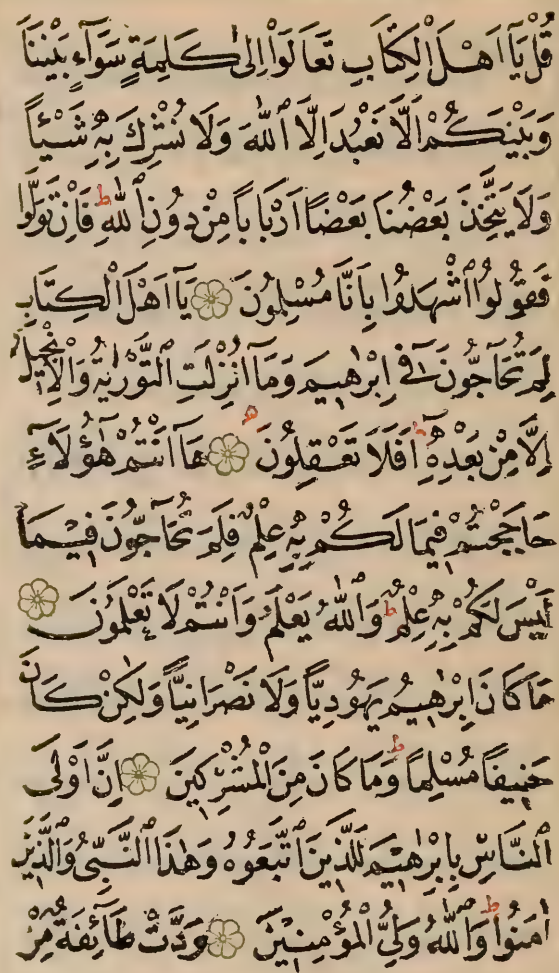 قُلْ يَآ اَهْلَ الْكِتَابِ تَعَالَوْا اِلٰى كَلِمَةٍ سَوَآءٍ بَيْنَنَا
وَبَيْنَكُمْ اَلَّا نَعْبُدَ اِلَّا اللّٰهَ وَلَا نُشْرِكَ بِهٖ شَيْـًٔا
وَلَا يَتَّخِذَ بَعْضُنَا بَعْضًا اَرْبَابًا مِنْ دُونِ اللّٰهِ ط فَاِنْ تَوَلَّوْا
فَقُولُوا اشْهَدُوا بِاَنَّا مُسْلِمُونَ ۝ يَآ اَهْلَ الْكِتَابِ
لِمَ تُحَآجُّونَ فٓى اِبْرٰهِيمَ وَمَآ اُنْزِلَتِ التَّوْرٰيةُ وَالْاِنْجِيلُ
اِلَّا مِنْ بَعْدِهٖ ط اَفَلَا تَعْقِلُونَ ط ۝ هَآ اَنْتُمْ هٰٓؤُلَآءِ
حَاجَجْتُمْ فِيمَا لَكُمْ بِهٖ عِلْمٌ فَلِمَ تُحَآجُّونَ فِيمَا
لَيْسَ لَكُمْ بِهٖ عِلْمٌ ط وَاللّٰهُ يَعْلَمُ وَاَنْتُمْ لَا تَعْلَمُونَ ۝
مَا كَانَ اِبْرٰهِيمُ يَهُودِيًّا وَلَا نَصْرَانِيًّا وَلٰكِنْ كَانَ
حَنِيفًا مُسْلِمًا ط وَمَا كَانَ مِنَ الْمُشْرِكِينَ ۝ اِنَّ اَوْلَى
النَّاسِ بِاِبْرٰهِيمَ لَلَّذِينَ اتَّبَعُوهُ وَهٰذَا النَّبِىُّ وَالَّذِينَ
اٰمَنُوا ط وَاللّٰهُ وَلِىُّ الْمُؤْمِنِينَ ۝ وَدَّتْ طَآئِفَةٌ مِنْ